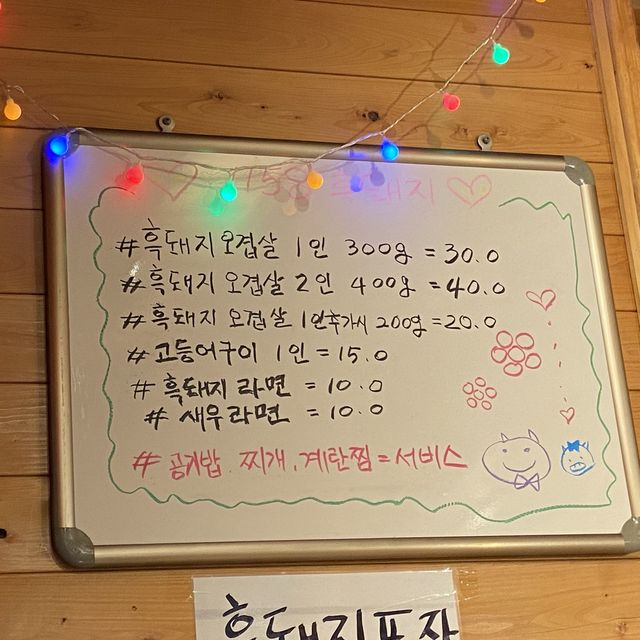 흑돼지
#흑돼지 오겹살 1인 300g = 30.0
#흑돼지 오겹살 2인 400g = 40.0
#흑돼지 오겹살 1인추가시 200g = 20.0
#고등어구이 1인 = 15.0
# 흑돼지 라면 = 10.0
# 새우라면 = 10.0
# 공기밥. 찌개. 계란찜 = 서비스
흑돼지포장